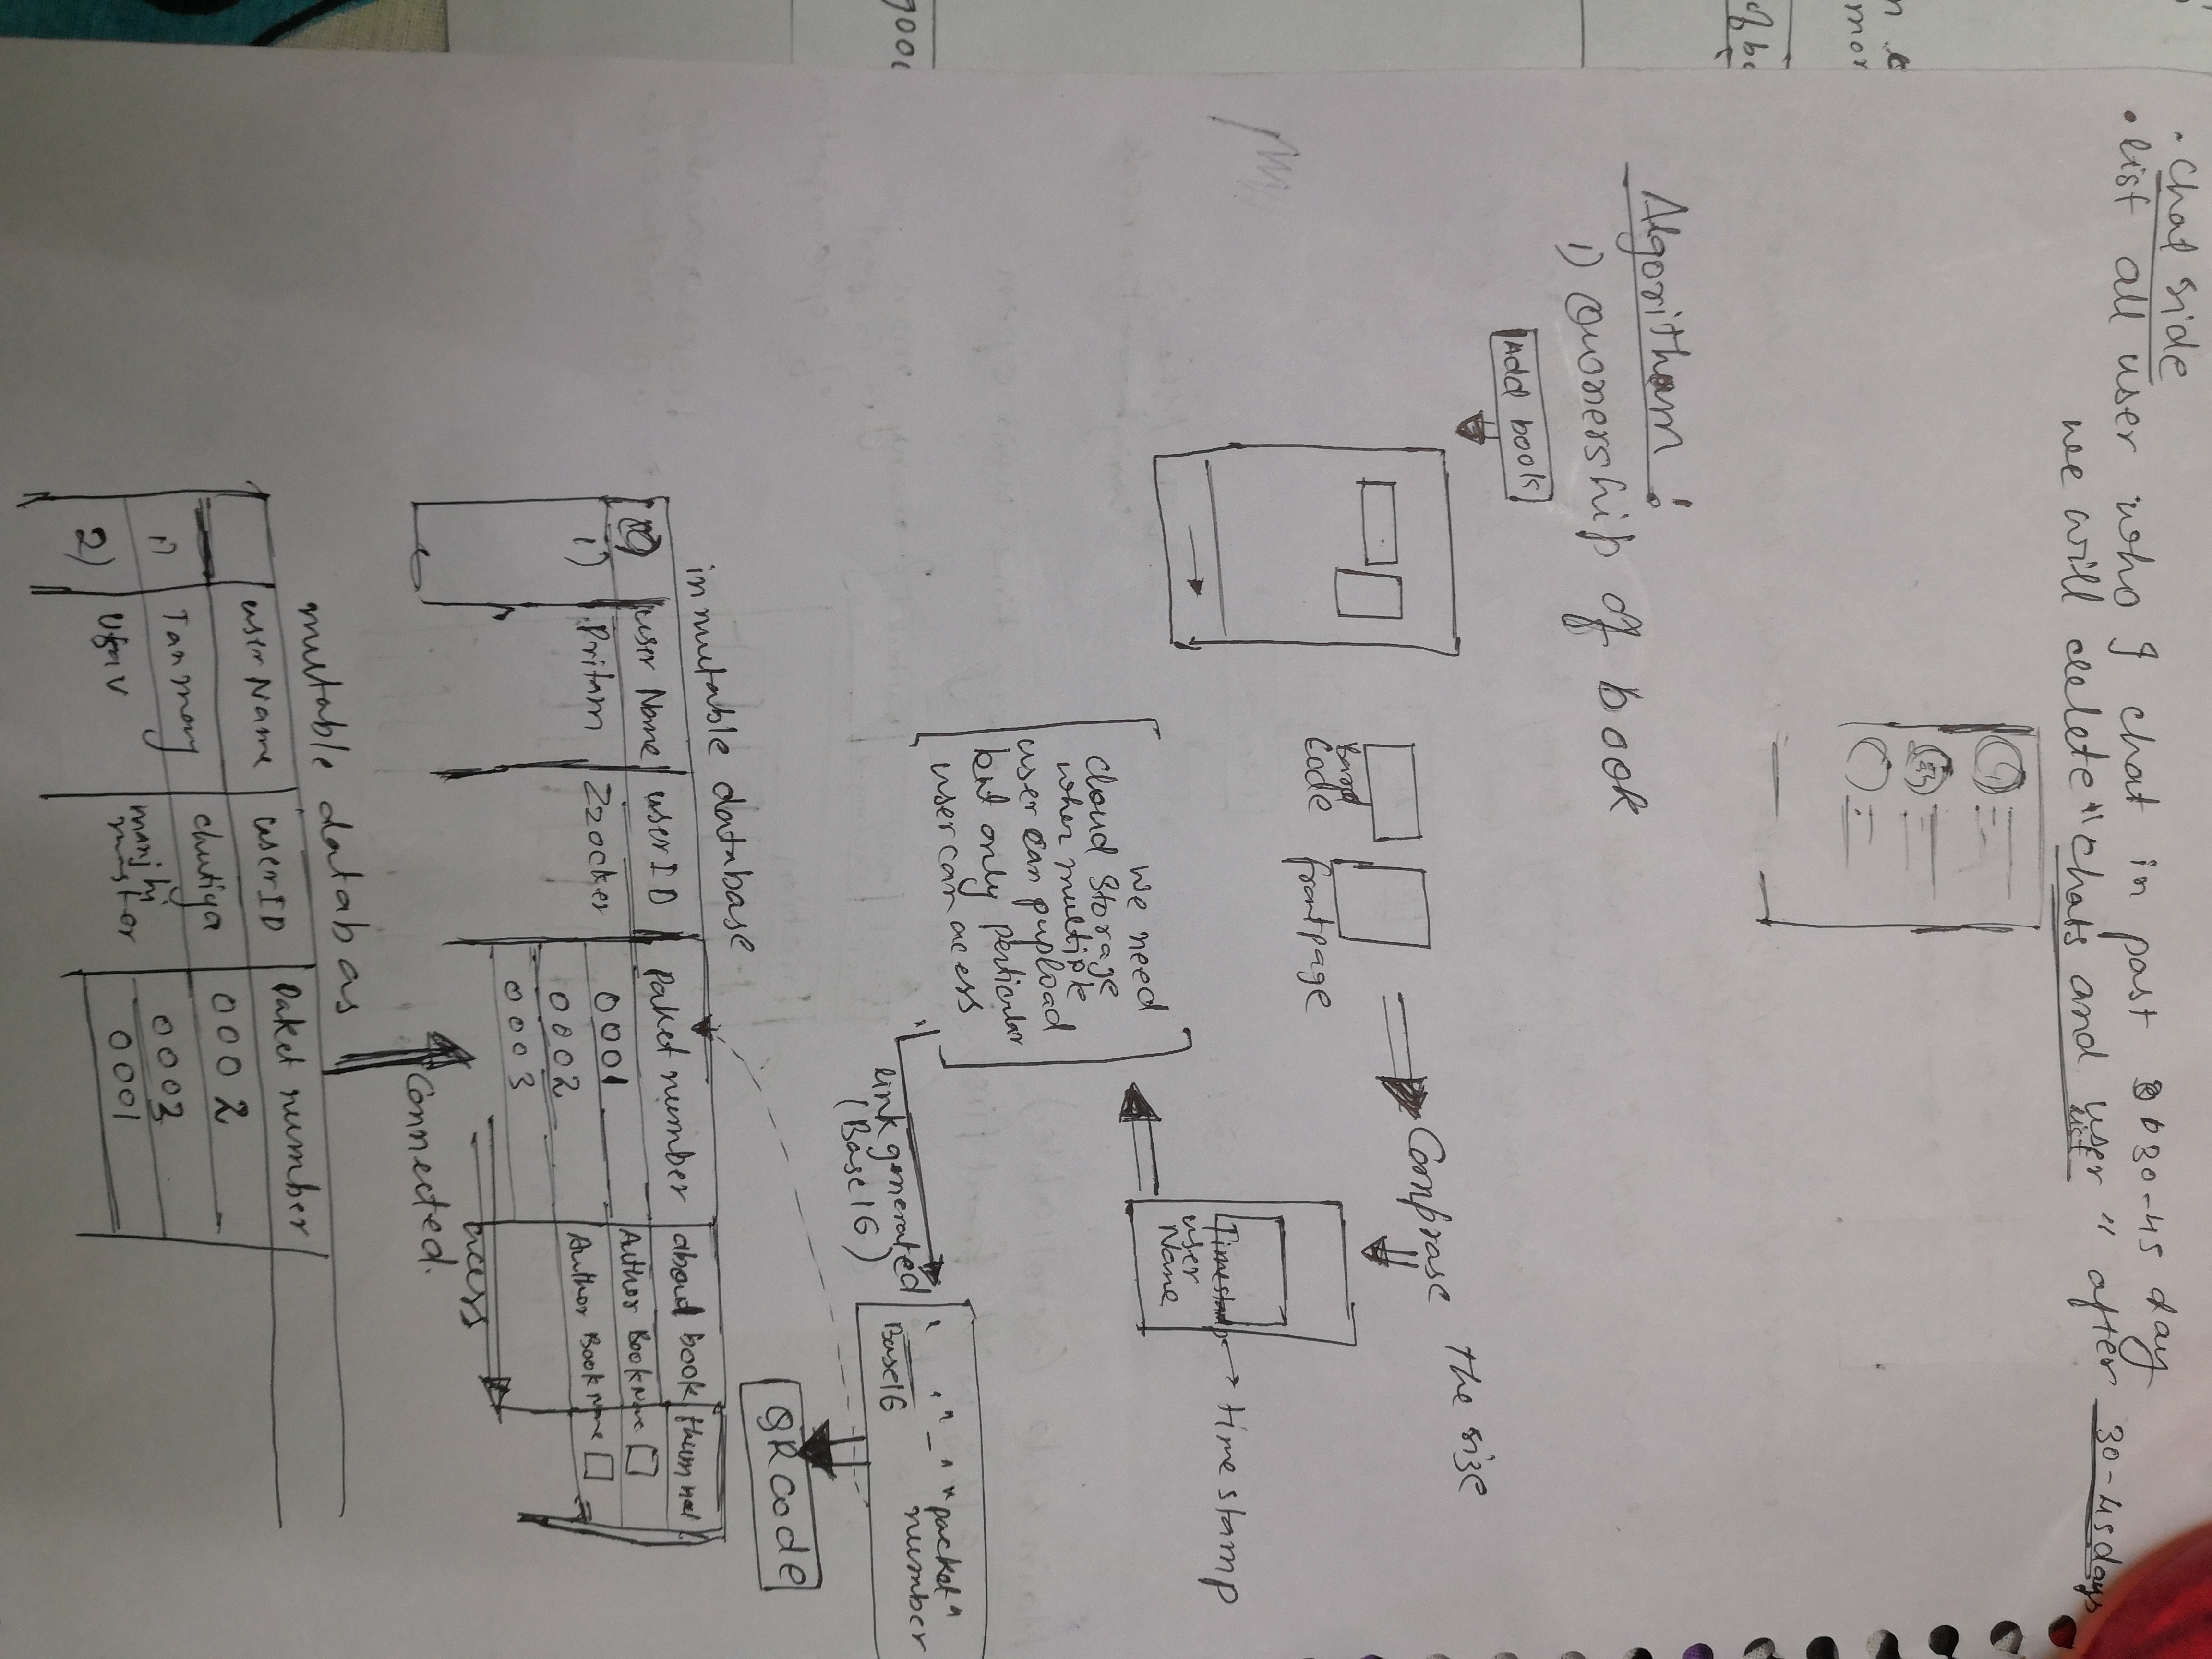 . Chat side
• list all user who I chat in past 30-45 day
we will delete "chats and user list" after 30-45days
n c
mor
of bo
Algoritham :
1) Ownership of book
Add book
Comprase the size
Bard
Code
frontpage
Timestamp → timestamp
user
Name
We need
cloud Storage
wher multiple
user can pupload
but only perticular
user can acess
link generated
(Base16)
" _ " "packet"
Base16 number
QR code
goo
inmutable database
user Name userID Paket number aboud book thumnal
1) Pritam Zzocker 0001 Author Book Name
0002 Author Book Name
0003
acess
Connected.
mutable databas
user Name userID Paket number
1) Tanmay chutiya 0002
2) manjhi 0003
0001